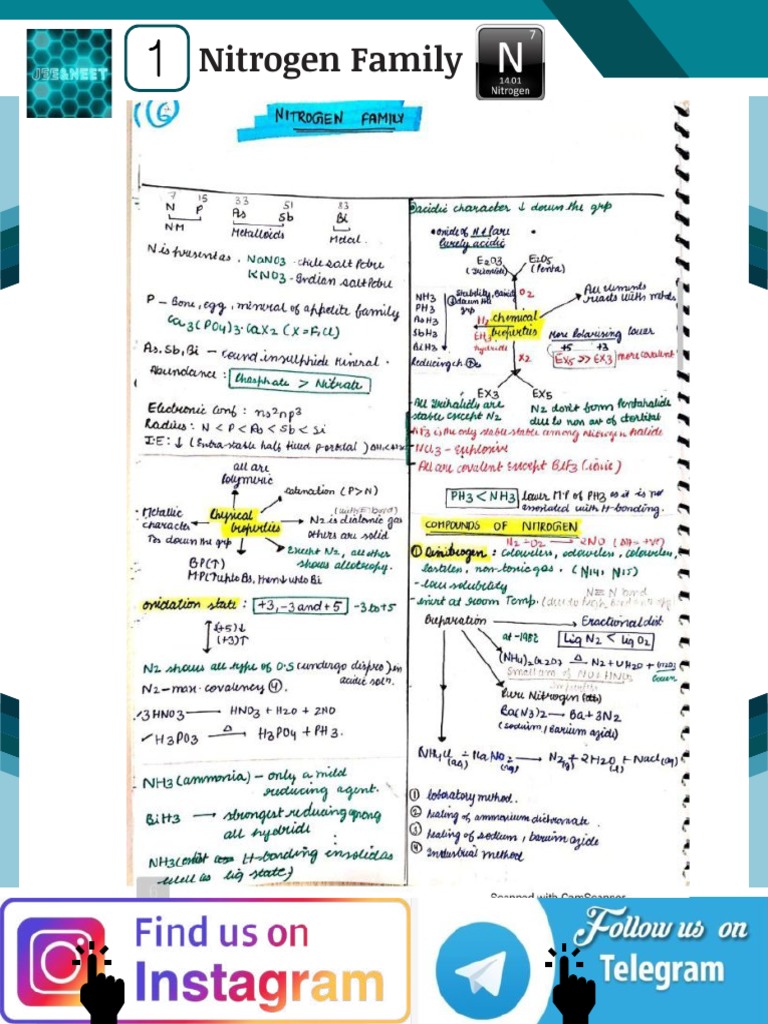 JEE&NEET
1
Nitrogen Family
7
N
14.01
Nitrogen
6
NITROGEN FAMILY
7 15 33 51 83
N P As Sb Bi
NM Metalloids Metal.
N is present as, NaNO3 - chile salt petre
KNO3 - Indian salt petre
P - Bone, egg, mineral of appetite family
Ca3(PO4)2·CaX2 (X = F, Cl)
As, Sb, Bi - found in sulphide mineral.
Abundance: Phosphate > Nitrate
Electronic Conf: ns²np³
Radius: N < P < As < Sb < Si
I.E: ↓ (Extra stable half filled p-orbital)
all are
Polymeric
catenation (P>N)
Metallic
character
↑es down the grp
Physical
properties
N2 is diatomic gas
others are solid
BP(↑)
Except N2, all other
shows allotropy.
oxidation state: +3, -3 and +5 -3 to +5
(+5)↓
(+3)↑
N2 shows all type of O.S (undergo dispro) in
acidic soln.
N2 - max. covalency 4.
✓3HNO3 → HNO3 + H2O + 2NO
✓H3PO3 →Δ H3PO4 + PH3.
NH3 (ammonia) - only a mild
reducing agent.
BiH3 → strongest reducing among
all hydride
H-bonding in solid as
well as liq state)
acidic character ↓ down the grp
• oxide of N & P are
purely acidic
E2O3
(Trioxide)
E2O5
(Penta)
O2
NH3
PH3
AsH3
SbH3
BiH3
Stability, Basic
down the
grp
Reducing ch
H2
EH3
hydride
chemical
properties
All elements
reacts with metals
X2
More Polarising lower
+5 +3
EX5 >> EX3 more covalent
EX3 EX5
All trihalide are
stable except N2
N2 don't form Pentahalide
due to non av of d orbital
NF3 is the only stable among Nitrogen halide
- NCl3 - Explosive
- All are covalent Except BiF3 (ionic)
PH3 < NH3 lower M.P of PH3 as it is not
associated with H-bonding.
COMPOUNDS OF NITROGEN
N2 + O2 → 2NO (ΔH = +ve)
① Dinitrogen: colourless, odourless, colourless,
tasteless, non-toxic gas. (N14, N15)
- low solubility
N≡N bond
- inert at room Temp.
Preparation → Fractional dist
Liq N2 < Liq O2
→Δ N2 +
Pure Nitrogen
Ba(N3)2 → Ba + 3N2
(sodium, barium azide)
NH4Cl(aq) + NaNO2(aq) → N2(g) + 2H2O(l) + NaCl(aq)
① laboratory method.
② heating of ammonium dichromate.
③ heating of sodium, barium azide
④ Industrial method
Scanned with CamScanner
Find us on
Instagram
Follow us on
Telegram